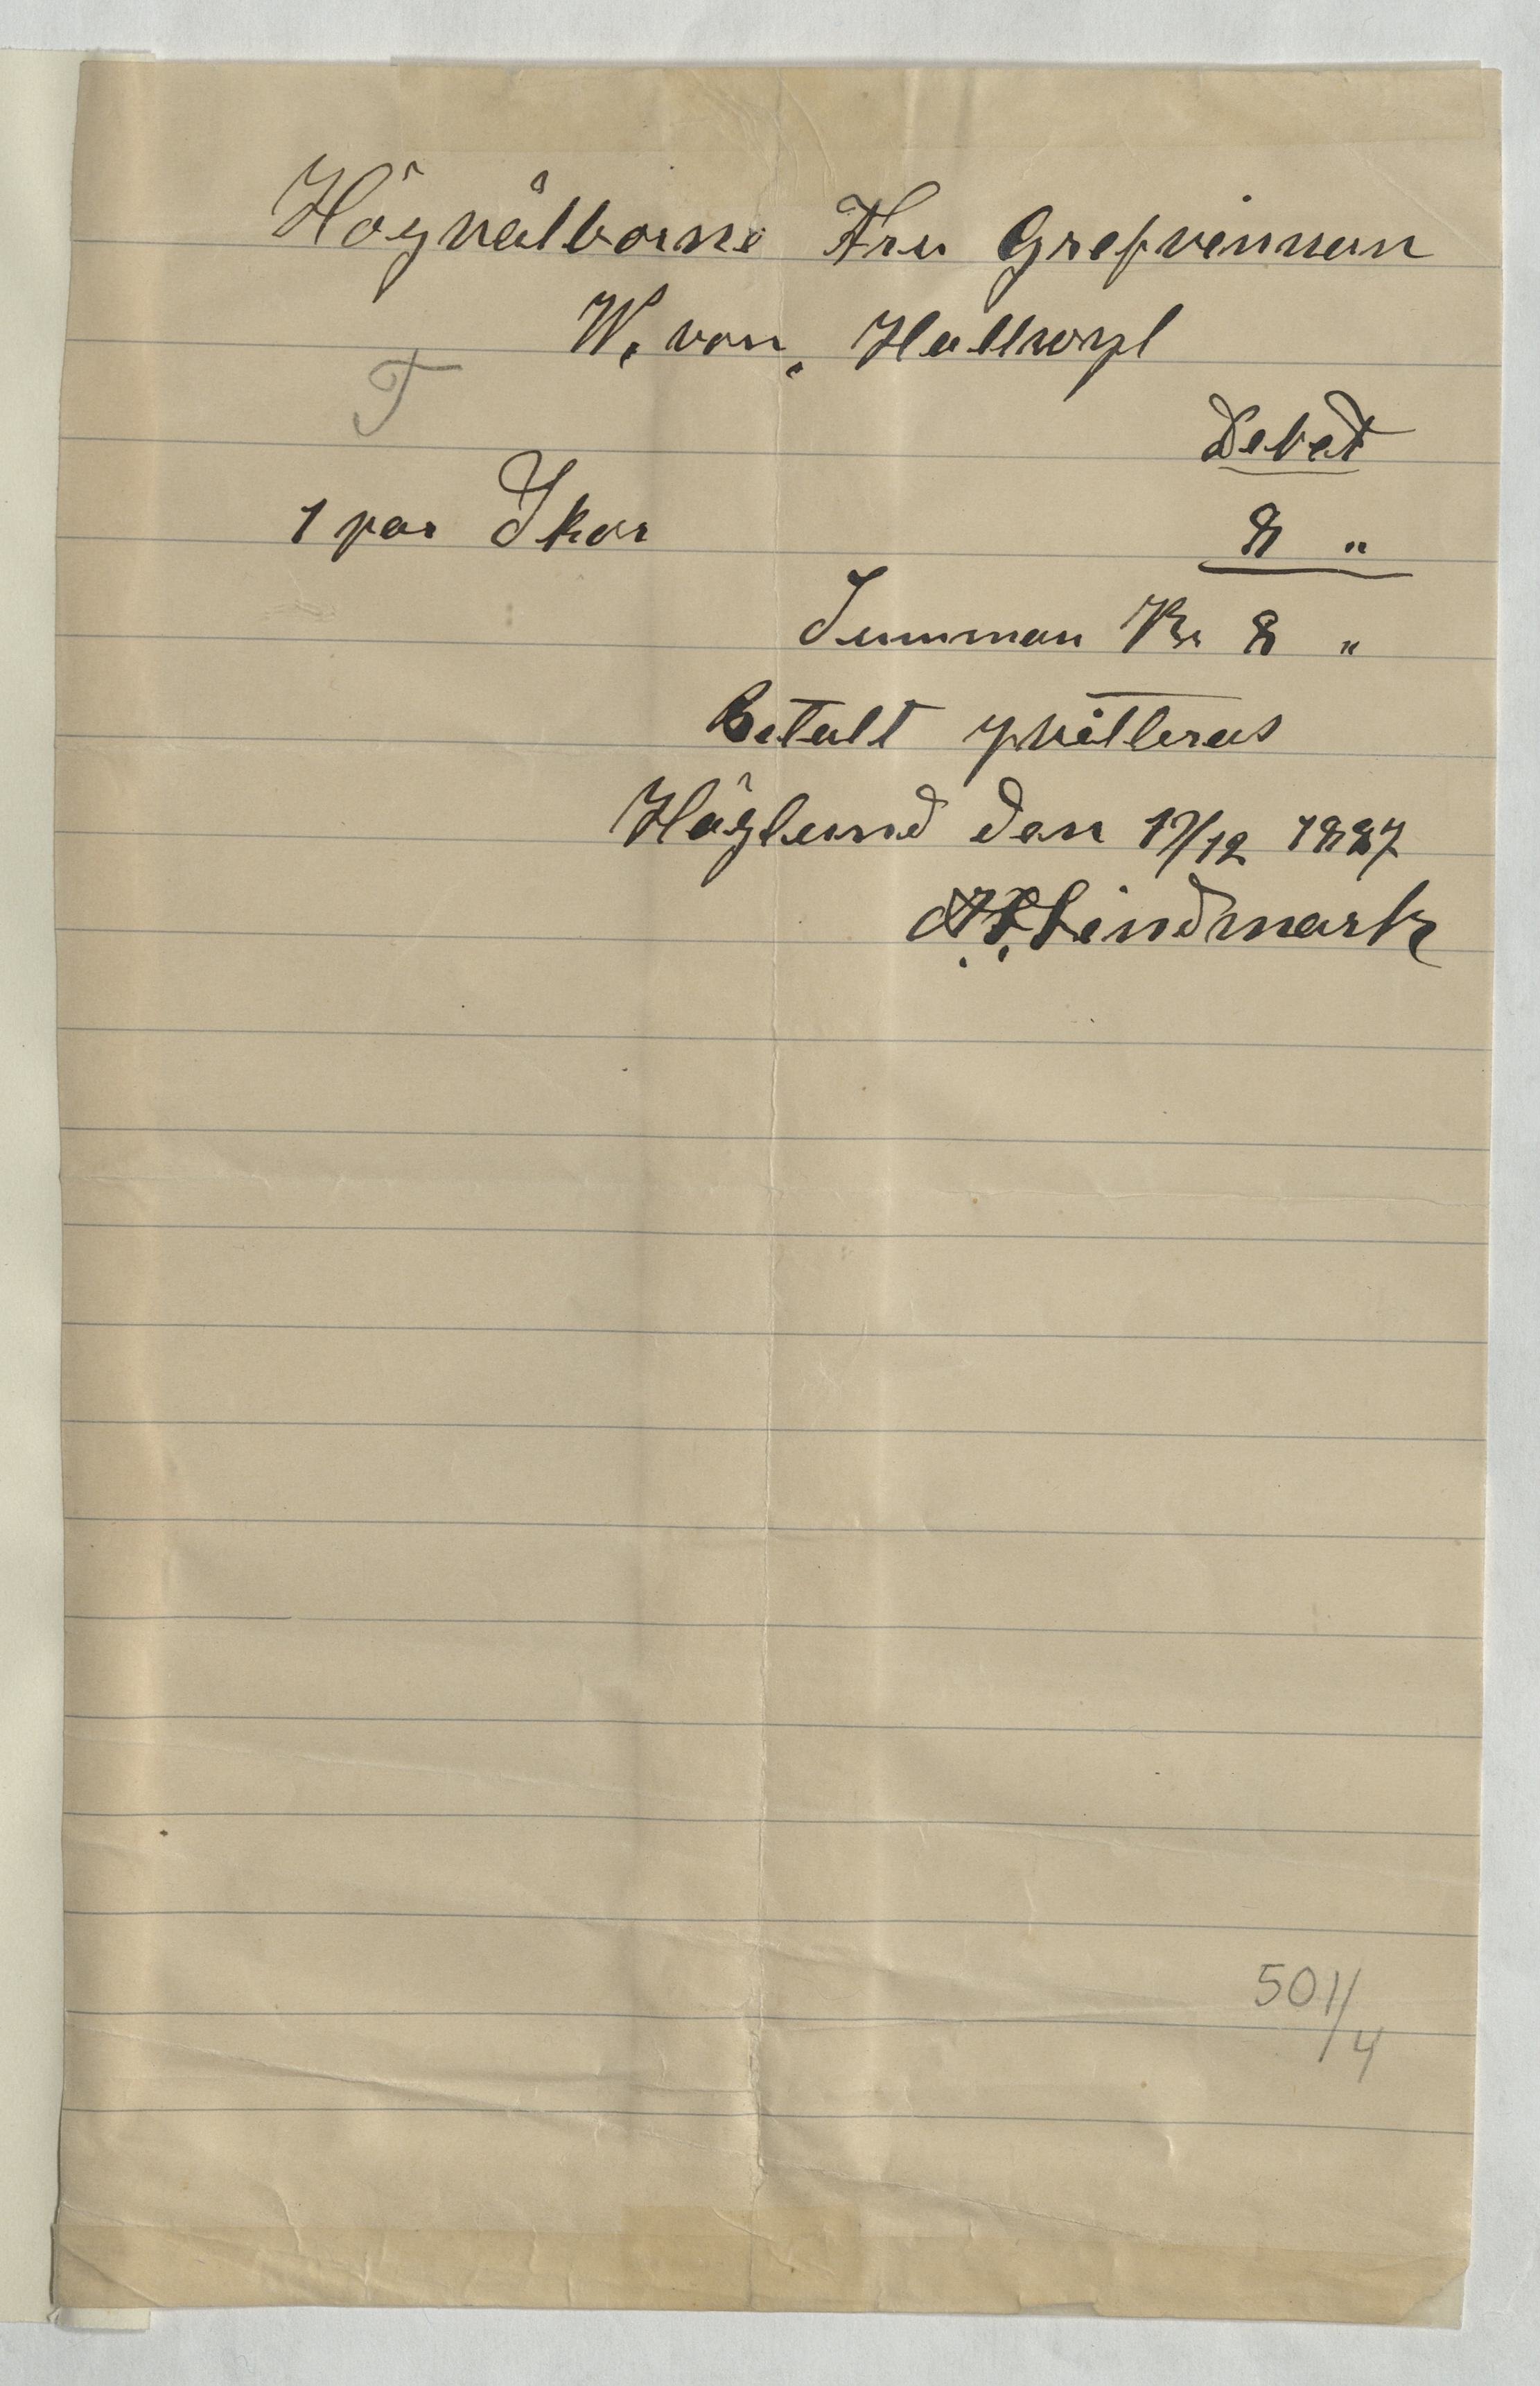 Högvälborne Fru Grefvinnan
W. von. Hallwyl
T
Debet
1 par Skor 8 „
Summan Kr 8 „
Betalt qvitteras
Höglund den 17/12 1887
Lindmark
501/4